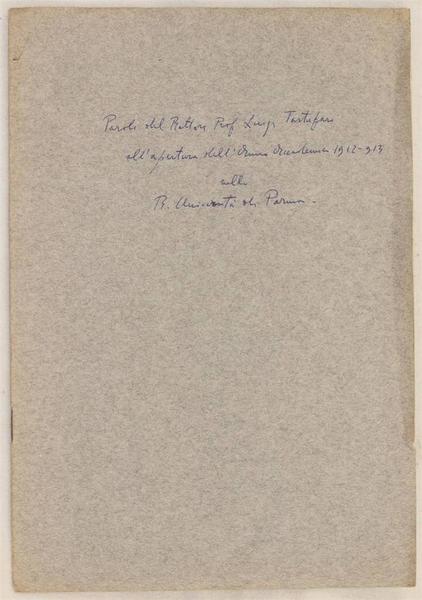 Parole del Rettore Prof. Luigi Tartufari
all'apertura dell'Anno Accademico 1912-913
nella
R. Università di Parma.